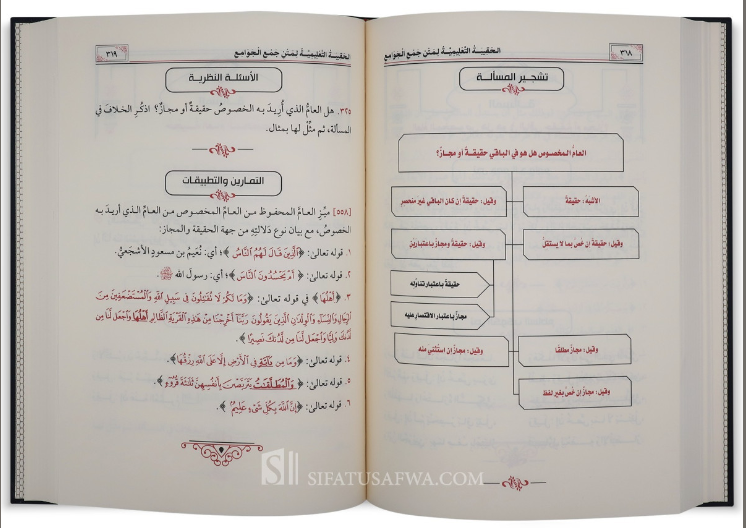 ٣١٨
الحَقِيبَةُ التَّعْلِيمِيَّةُ لِمَتْنِ جَمْعِ الْجَوَامِعِ
تشجير المسألة
العامّ المخصوص هل هو في الباقي حقيقةٌ أو مجازٌ؟
الأشبه: حقيقةٌ
وقيل: حقيقةٌ إن كان الباقي غير منحصرٍ
وقيل: حقيقةٌ إن خُصَّ بما لا يستقلّ
وقيل: حقيقةٌ ومجازٌ باعتبارين
حقيقةٌ باعتبار تناوُله
مجازٌ باعتبار الاقتصار عليه
وقيل: مجازٌ مطلقًا
وقيل: مجازٌ إن استُثني منه
وقيل: مجازٌ إن خُصَّ بغير لفظٍ
الحَقِيبَةُ التَّعْلِيمِيَّةُ لِمَتْنِ جَمْعِ الْجَوَامِعِ
٣١٩
الأسئلة النظرية
٣٢٥. هل العامُّ الذي أُريدَ به الخصوصُ حقيقةٌ أو مجازٌ؟ اذكُرِ الخلافَ في
المسألة، ثم مثِّلْ لها بمثال.
التمارين والتطبيقات
[٥٥٨] ميِّزِ العامَّ المحفوظَ من العامِّ المخصوصِ من العامِّ الذي أريدَ به
الخصوصُ، مع بيان نوع دَلالتِهِ من جهة الحقيقة والمجاز:
١. قوله تعالىٰ: ﴿الَّذِينَ قَالَ لَهُمُ النَّاسُ﴾؛ أي: نُعَيمُ بن مسعودٍ الأشجَعيُّ.
٢. قوله تعالىٰ: ﴿أَمْ يَحْسُدُونَ النَّاسَ﴾؛ أي: رسولَ الله ﷺ.
٣. ﴿أَهْلُهَا﴾ في قوله تعالىٰ: ﴿وَمَا لَكُمْ لَا تُقَاتِلُونَ فِي سَبِيلِ اللَّهِ وَالْمُسْتَضْعَفِينَ مِنَ
الرِّجَالِ وَالنِّسَاءِ وَالْوِلْدَانِ الَّذِينَ يَقُولُونَ رَبَّنَا أَخْرِجْنَا مِنْ هَٰذِهِ الْقَرْيَةِ الظَّالِمِ أَهْلُهَا وَاجْعَل لَّنَا مِن
لَّدُنكَ وَلِيًّا وَاجْعَل لَّنَا مِن لَّدُنكَ نَصِيرًا﴾.
٤. قوله تعالىٰ: ﴿وَمَا مِن دَابَّةٍ فِي الْأَرْضِ إِلَّا عَلَى اللَّهِ رِزْقُهَا﴾.
٥. قوله تعالىٰ: ﴿وَالْمُطَلَّقَاتُ يَتَرَبَّصْنَ بِأَنفُسِهِنَّ ثَلَاثَةَ قُرُوءٍ﴾.
٦. قوله تعالىٰ: ﴿إِنَّ اللَّهَ بِكُلِّ شَيْءٍ عَلِيمٌ﴾.
SIFATUSAFWA.COM